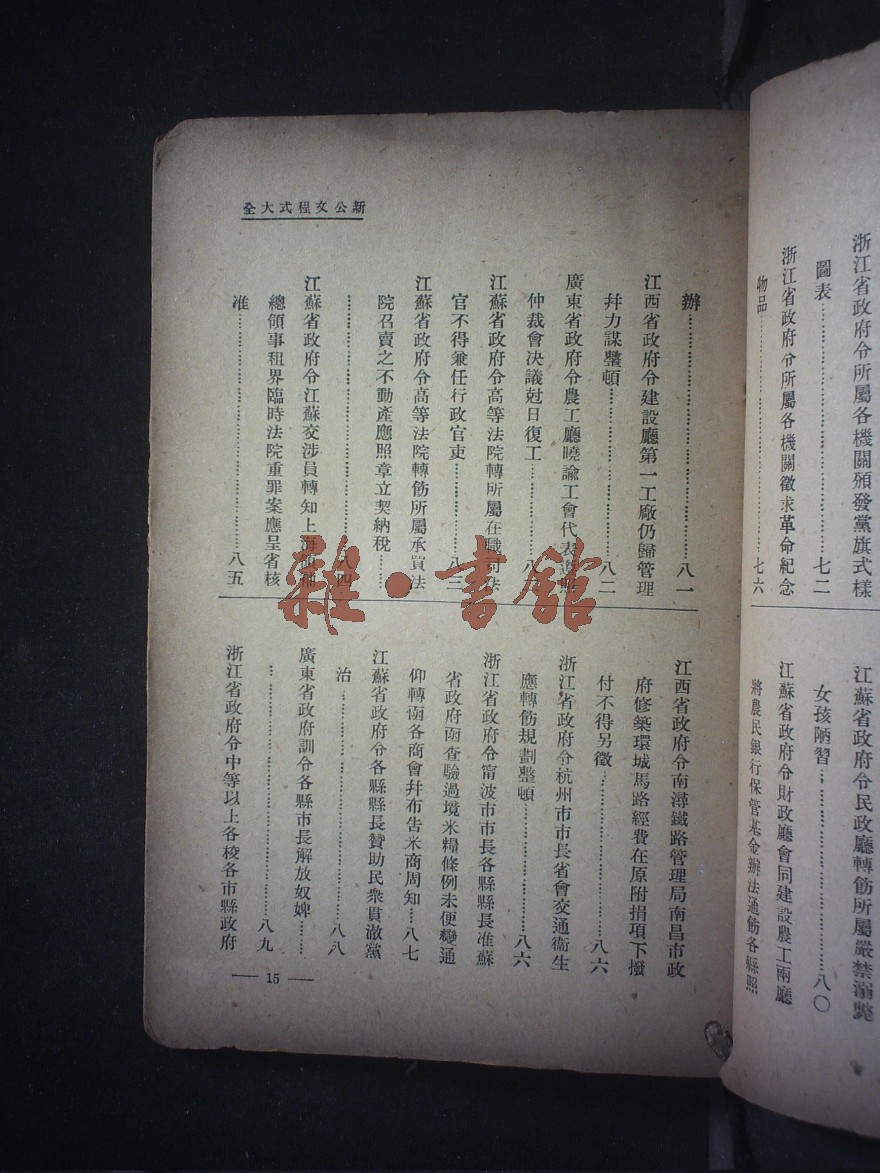 浙江省政府令所屬各機關頒發黨旗式樣
圖表……七二
浙江省政府令所屬各機關徵求革命紀念
物品……七六
江蘇省政府令民政廳轉飭所屬嚴禁溺斃
女孩陋習……八〇
江蘇省政府令財政廳會同建設農工兩廳
將農民銀行保管基金辦法通飭各縣照
新公文程式大全
辦……八一
江西省政府令建設廳第一工廠仍歸管理
幷力謀整頓……八二
廣東省政府令農工廳曉諭工會代表遵照
仲裁會決議尅日復工……八
江蘇省政府令高等法院轉所屬在職司法
官不得兼任行政官吏……八三
江蘇省政府令高等法院轉飭所屬承買法
院召賣之不動產應照章立契納稅……
……八四
江蘇省政府令江蘇交涉員轉知上海領袖
總領事租界臨時法院重罪案應呈省核
准……八五
江西省政府令南潯鐵路管理局南昌市政
府修築環城馬路經費在原附捐項下撥
付不得另徵……八六
浙江省政府令杭州市市長省會交通衞生
應轉飭規劃整頓……八六
浙江省政府令甯波市市長各縣縣長准蘇
省政府函查驗過境米糧條例未便變通
仰轉函各商會幷布告米商周知……八七
江蘇省政府令各縣縣長贊助民衆貫澈黨
治……八八
廣東省政府訓令各縣市長解放奴婢……
……八九
浙江省政府令中等以上各校各市縣政府
— 15 —
雜·書館